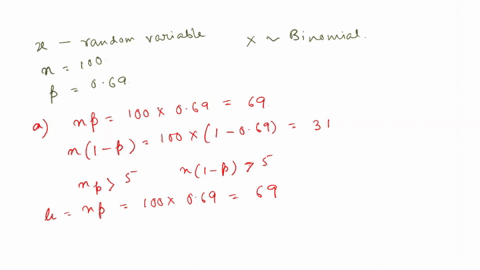 x – random variable    X ~ Binomial.
n = 100
p = 0.69
a) np = 100 × 0.69 = 69
n(1-p) = 100 × (1-0.69) = 31
np > 5    n(1-p) > 5
μ = np = 100 × 0.69 = 69